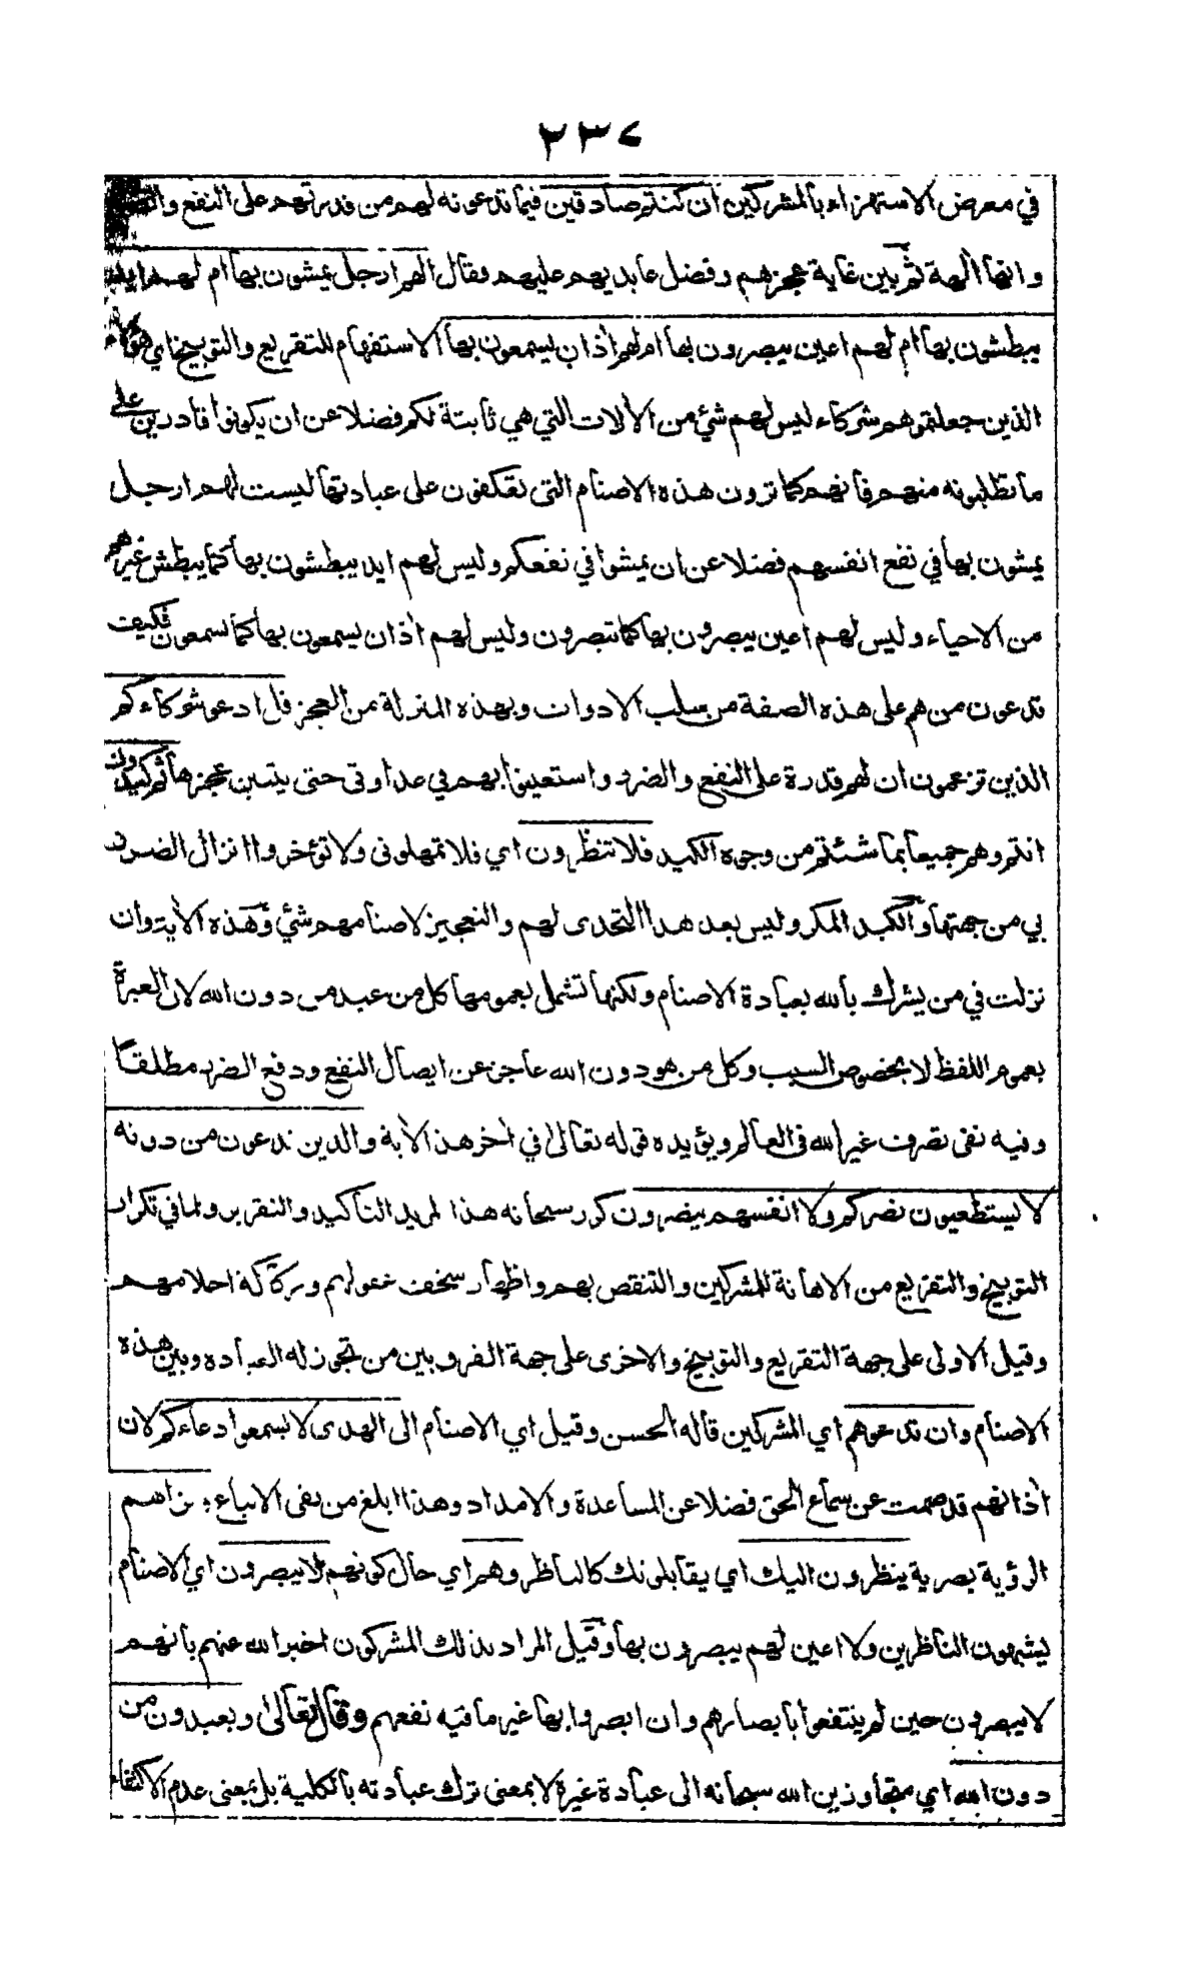 ٢٣٧
في معرض الاستهزاء بالمشركين ان كنتم صادقين فيما تدعونه لهم من قدرتهم على النفع و
وانها آلهة ثم بين غاية عجزهم وفضل عابديهم عليهم وقال الهم ارجل يمشون بها ام لهم ايد
يبطشون بها ام لهم اعين يبصرون بها ام لهم اذان يسمعون بها الاستفهام للتقريع والتوبيخ اي هؤلاء
الذين جعلتموهم شركاء ليس لهم شئ من الآلات التي هي ثابتة لكم فضلا عن ان يكونوا قادرين على
ما تطلبونه منهم فانهم كما ترون هذه الاصنام التى تعكفون على عبادتها ليست لهم ارجل
يمشون بها في نفع انفسهم فضلا عن ان يمشوا في نفعكم وليس لهم ايد يبطشون بها كما يبطش غيرهم
من الاحياء وليس لهم اعين يبصرون بها كما تبصرون وليس لهم اذان يسمعون بها كما تسمعون فكيف
تدعون من هم على هذه الصفة من سلب الادوات وبهذه المنزلة من العجز قل ادعو شركاءكم
الذين تزعمون ان لهم قدرة على النفع والضرر واستعينوا بهم في عداوتى حتى يتبين عجزها ثم كيدون
انتم وهم جميعا بما شئتم من وجوه الكيد فلا تنظرون اي فلا تمهلونى ولا تؤخروا انزال الضرر
بي من جهتها والكيد المكر وليس بعد هذا التحدى لهم والتعجيز لاصنامهم شئ وهذه الآية وان
نزلت في من يشرك بالله بعبادة الاصنام ولكنها تشمل بعمومها كل من عبد من دون الله لان العبرة
بعموم اللفظ لا بخصوص السبب وكل من هو دون الله عاجز عن ايصال النفع ودفع الضرر مطلقا
وفيه نفى تصرف غير الله فى العالم ويؤيده قوله تعالى في آخر هذ الآية والذين تدعون من دونه
لا يستطعيون نصركم ولا انفسهم ينصرون كرر سبحانه هذا لمزيد التأكيد والتقرير ولما في تكرار
التوبيخ والتقريع من الاهانة للمشركين والتنقص بهم واظهار سخف عقولهم وركاكة احلامهم
وقيل الاولى على جهة التقريع والتوبيخ والاخرى على جهة الفرق بين من تجوز له العبادة وبين هذه
الاصنام وان تدعوهم اي المشركين قاله الحسن وقيل اي الاصنام الى الهدى لا يسمعوا دعاءكم لان
اذانهم قد صمت عن سماع الحق فضلا عن المساعدة والامداد وهذا ابلغ من نفى الاتباع وتراهم
الرؤية بصرية ينظرون اليك اي يقابلونك كالناظر وهم اي حال كونهم لا يبصرون اي الاصنام
يشبهون الناظرين ولا اعين لهم يبصرون بها وقيل المراد بذلك المشركون اخبر الله عنهم بانهم
لا يبصرون حين لم ينتفعوا بابصارهم وان ابصروا بها غير ما فيه نفعهم وقال تعالى ويعبدون من
دون الله اي متجاوزين الله سبحانه الى عبادة غيره لا بمعنى ترك عبادته بالكلية بل بمعنى عدم الاكتفاء